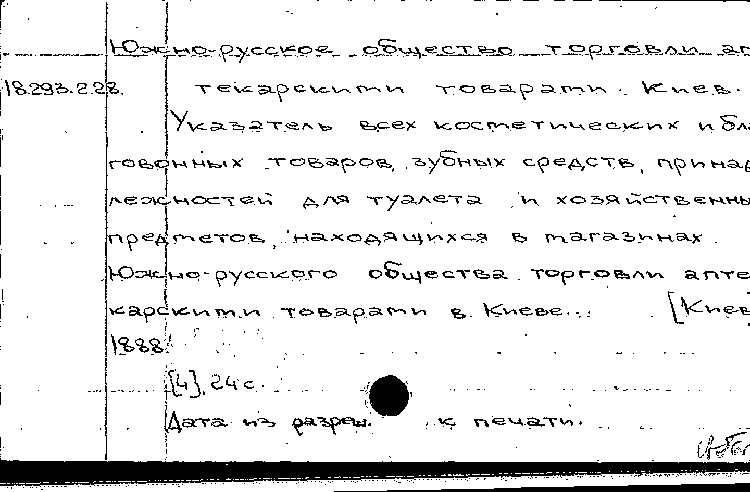 Южно-русское общество торговли ап
18.293.2.28. текарскими товарами. Киев.
Указатель всех косметических и бла
говонных товаров, зубных средств, принад
лежностей для туалета и хозяйственны
предметов, находящихся в магазинах
Южно-русского общества торговли апте
карскими товарами в Киеве... [Киев
1888.
[4], 24 с.
Дата из разреш. к печати.